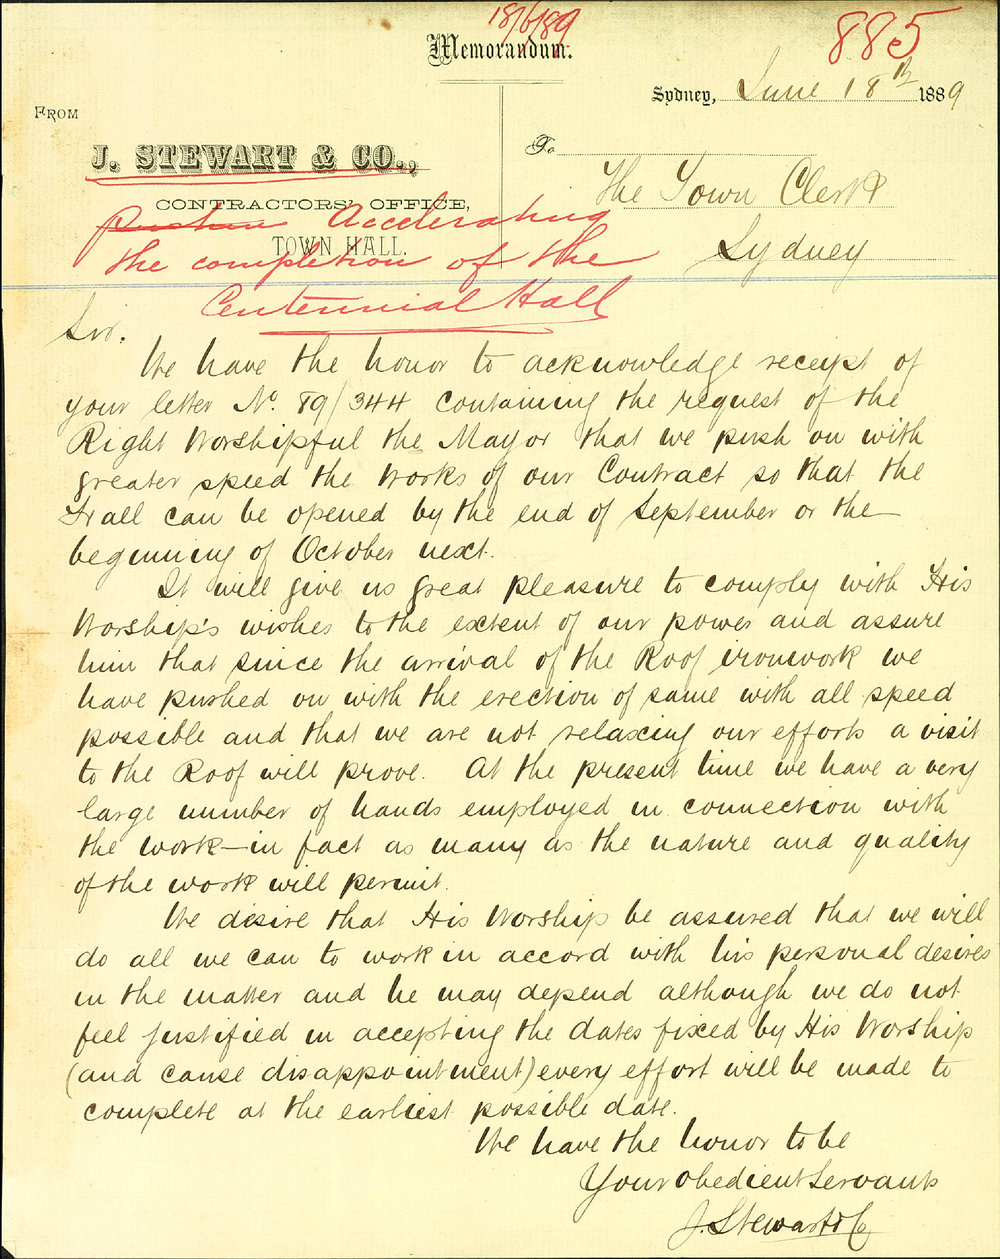 18/6/89
885
Memorandum.
Sydney, June 18th 1889
FROM
J. STEWART & CO.,
CONTRACTORS' OFFICE,
TOWN HALL.
To
The Town Clerk
Sydney
Accelerating
the completion of the
Centennial Hall
Sir.
We have the honor to acknowledge receipt of
your letter No. 89/344 containing the request of the
Right Worshipful the Mayor that we push on with
greater speed the works of our Contract so that the
Hall can be opened by the end of September or the
beginning of October next.
It will give us great pleasure to comply with His
Worship's wishes to the extent of our power and assure
him that since the arrival of the Roof ironwork we
have pushed on with the erection of same with all speed
possible and that we are not relaxing our efforts a visit
to the Roof will prove. At the present time we have a very
large number of hands employed in connection with
the work—in fact as many as the nature and quality
of the work will permit.
We desire that His Worship be assured that we will
do all we can to work in accord with his personal desires
in the matter and he may depend although we do not
feel justified in accepting the dates fixed by His Worship
(and cause disappointment) every effort will be made to
complete at the earliest possible date.
We have the honor to be
Your obedient Servants
J. Stewart & Co